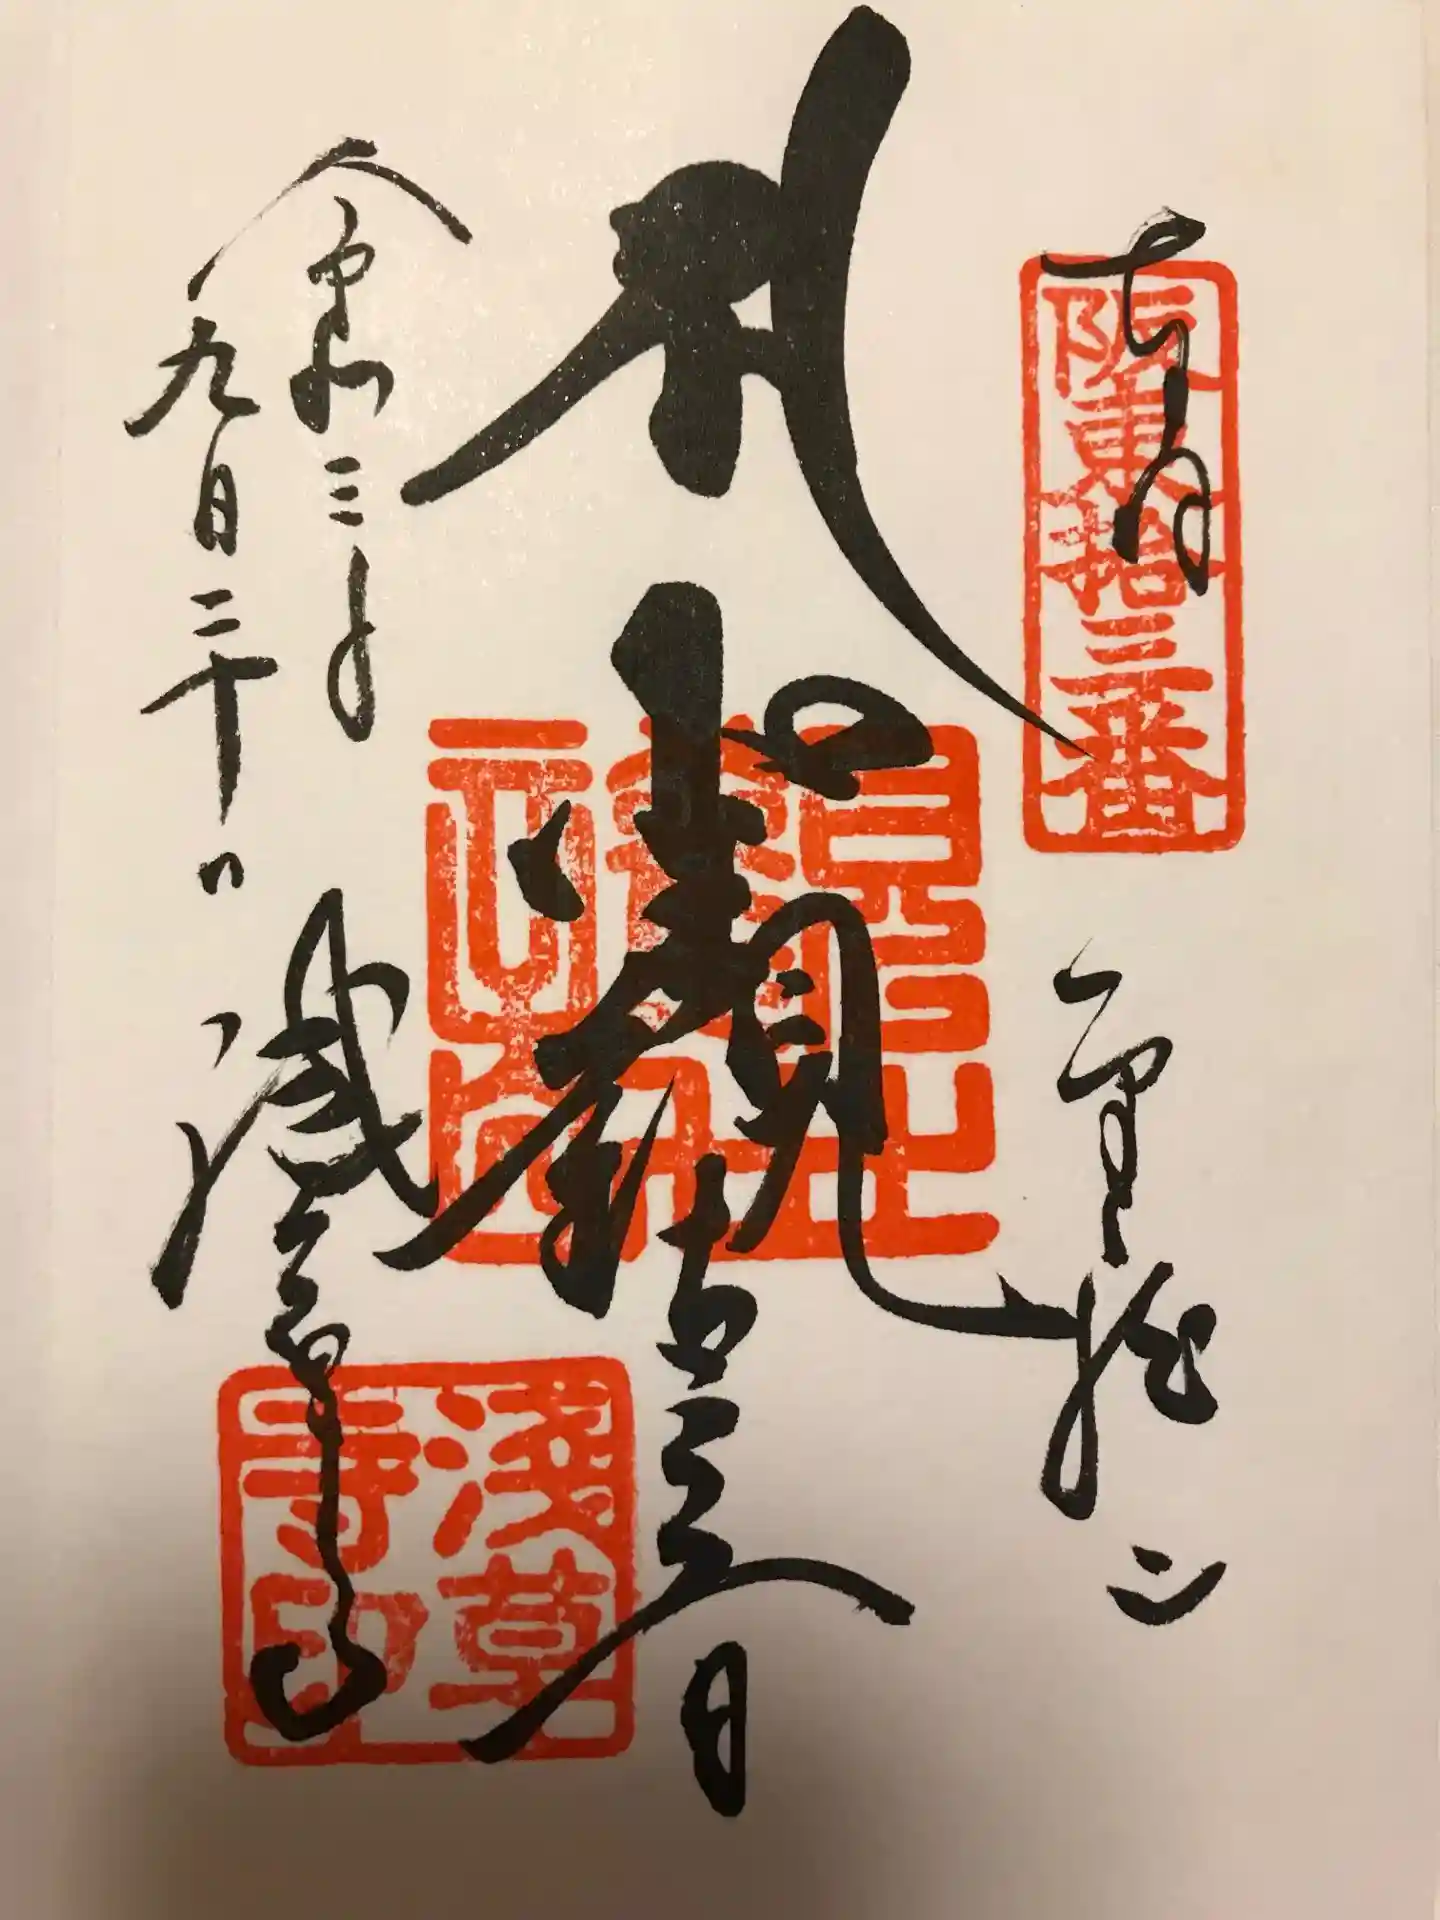 阪東拾三番
金龍山
聖観世音
令和三年
九月二十日
浅草寺
淺草
寺印